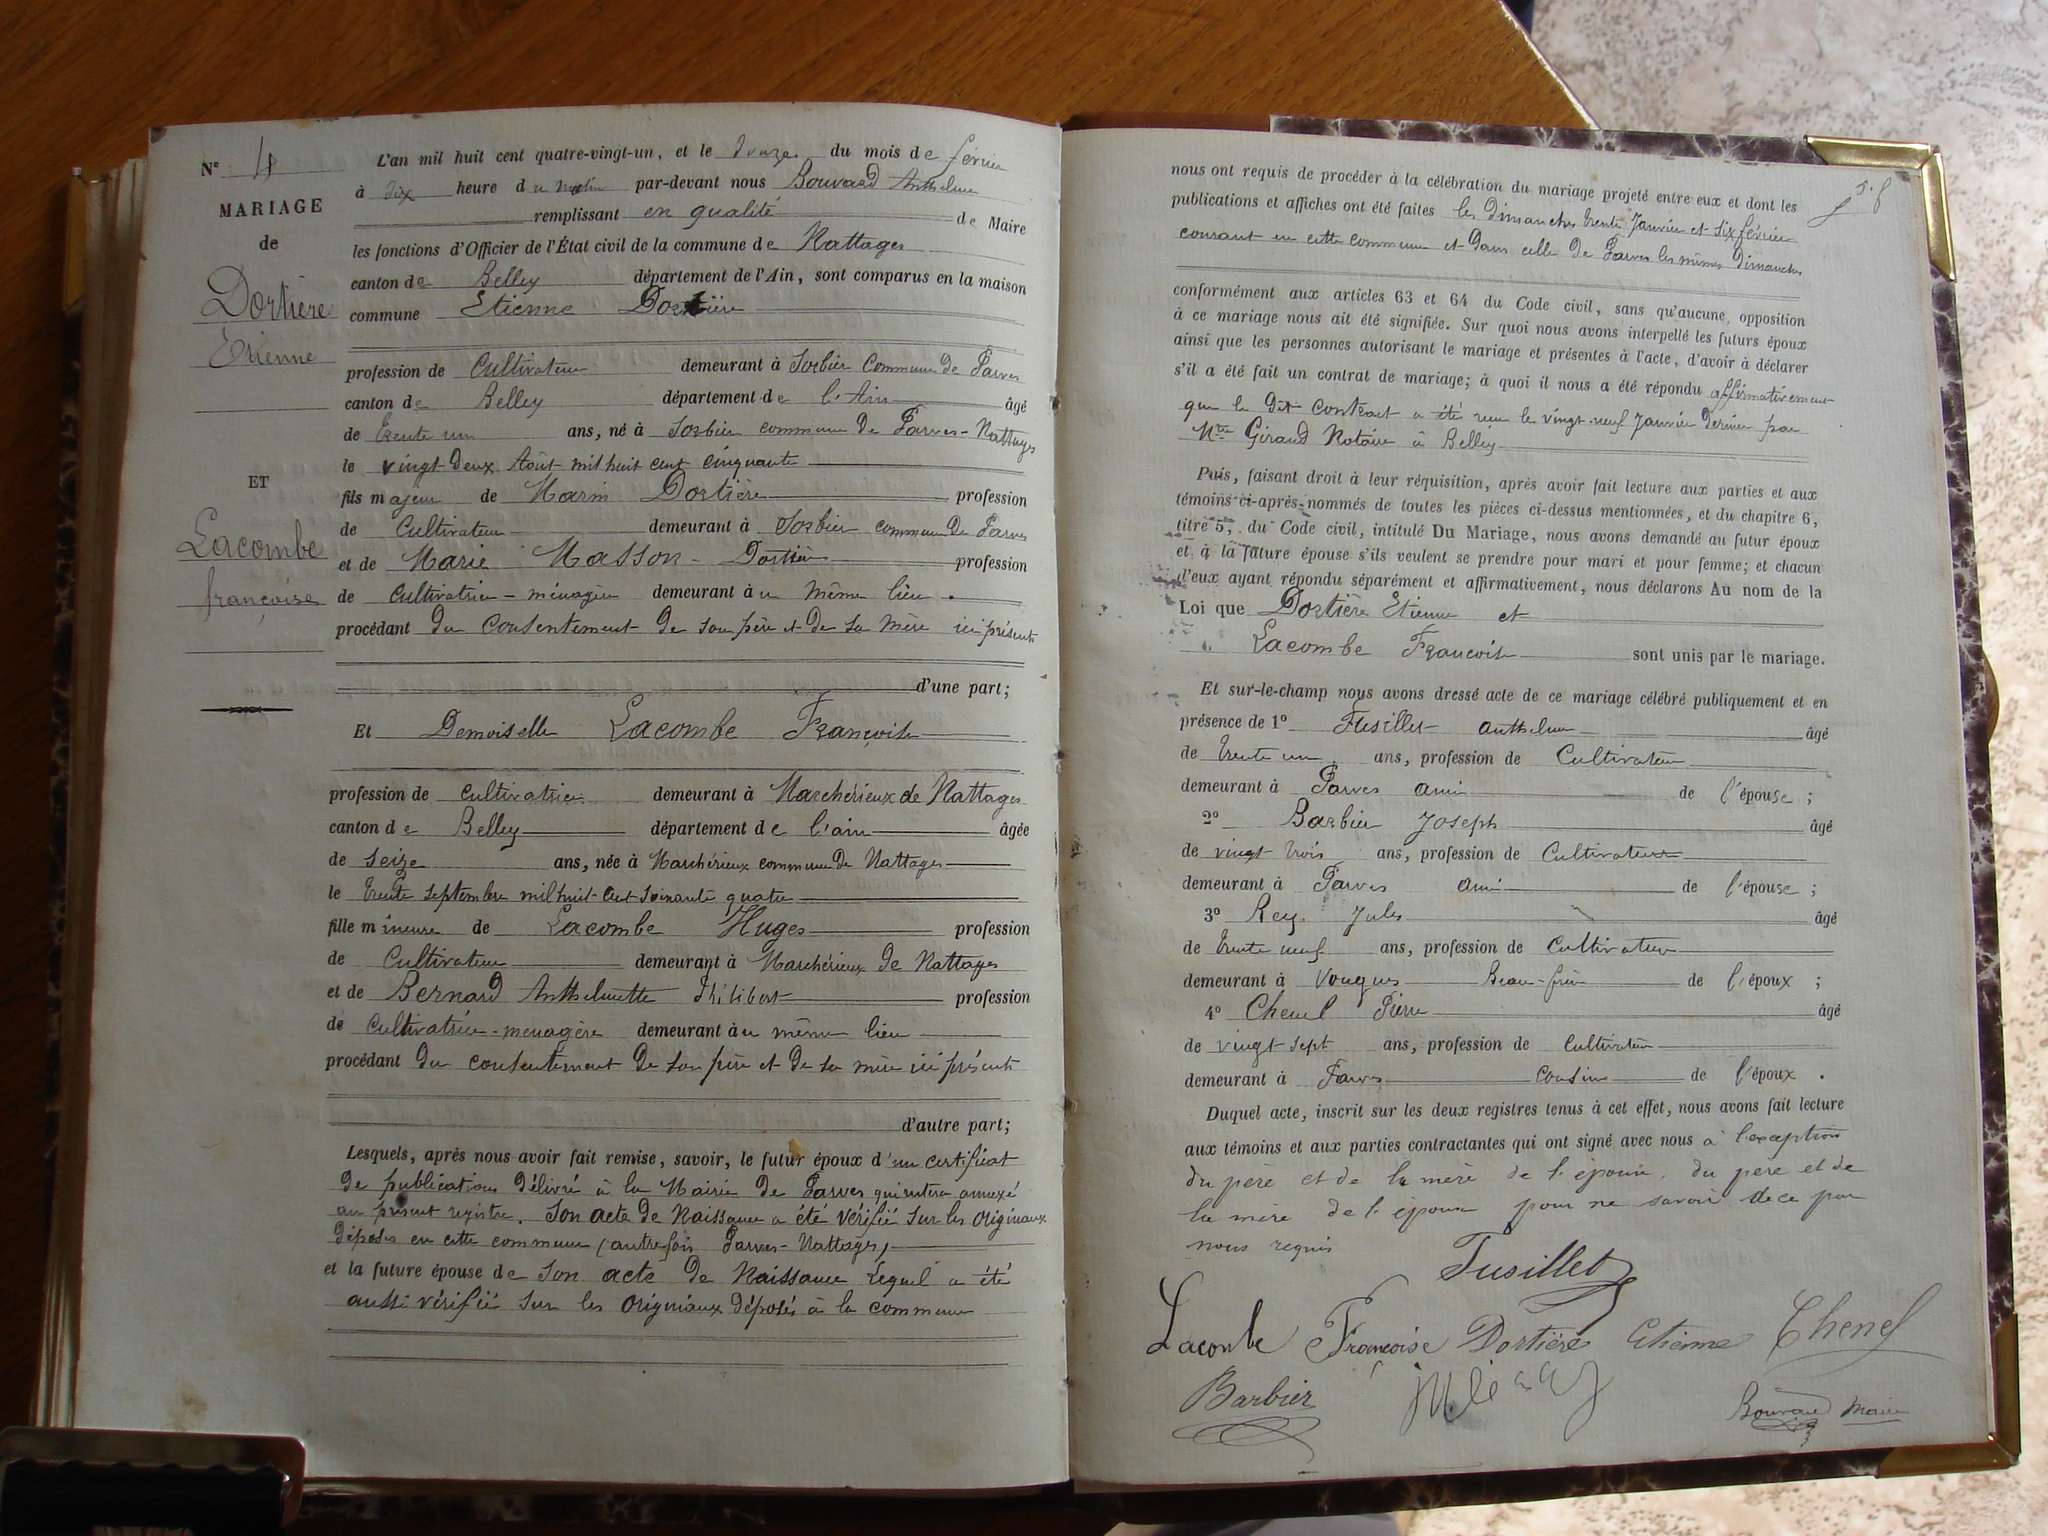 N° 4
MARIAGE
de
Dortière
Etienne
ET
Lacombe
françoise
L'an mil huit cent quatre-vingt-un, et le douze du mois de février
à dix heure du matin par-devant nous Bouvard Anthelme
remplissant en qualité de Maire
les fonctions d'Officier de l'État civil de la commune de Nattages
canton de Belley département de l'Ain, sont comparus en la maison
commune Etienne Dortière
profession de Cultivateur demeurant à Sorbier Commune de Parves
canton de Belley département de l'Ain âgé
de trente un ans, né à Sorbier commune de Parves-Nattages
le vingt deux Août mil huit cent cinquante
fils majeur de Marin Dortière profession
de Cultivateur demeurant à Sorbier commune de Parves
et de Marie Masson - Dortière profession
de Cultivatrice - ménagère demeurant au même lieu.
procédant du consentement de son père et de sa mère ici présents
d'une part;
Et Demoiselle Lacombe Françoise
profession de cultivatrice demeurant à Marchérieux de Nattages
canton de Belley département de l'ain âgée
de seize ans, née à Marchérieux commune de Nattages
le trente septembre mil huit cent soixante quatre
fille mineure de Lacombe Huges profession
de Cultivateur demeurant à Marchérieux de Nattages
et de Bernard Anthelmette Philibert profession
de Cultivatrice - menagère demeurant au même lieu
procédant du consentement de son père et de sa mère ici présents
d'autre part;
Lesquels, après nous avoir fait remise, savoir, le futur époux d'un certificat
de publications délivré à la Mairie de Parves qui restera annexé
au présent registre. Son acte de Naissance a été vérifié sur les Originaux
déposés en cette commune (autrefois Parves-Nattages)
et la future épouse de son acte de Naissance lequel a été
aussi vérifié sur les Originaux déposés à la commune
nous ont requis de procéder à la célébration du mariage projeté entre eux et dont les
publications et affiches ont été faites les dimanches trente Janvier et six février
courant en cette commune et dans celle de Parves les mêmes dimanches
conformément aux articles 63 et 64 du Code civil, sans qu'aucune opposition
à ce mariage nous ait été signifiée. Sur quoi nous avons interpellé les futurs époux
ainsi que les personnes autorisant le mariage et présentes à l'acte, d'avoir à déclarer
s'il a été fait un contrat de mariage; à quoi il nous a été répondu affirmativement
que le dit contrat a été reçu le vingt-neuf Janvier dernier par
Mtre Girand Notaire à Belley
Puis, faisant droit à leur réquisition, après avoir fait lecture aux parties et aux
témoins ci-après-nommés de toutes les pièces ci-dessus mentionnées, et du chapitre 6,
titre 5, du Code civil, intitulé Du Mariage, nous avons demandé au futur époux
et à la future épouse s'ils veulent se prendre pour mari et pour femme; et chacun
d'eux ayant répondu séparément et affirmativement, nous déclarons Au nom de la
Loi que Dortière Etienne et
Lacombe Françoise sont unis par le mariage.
Et sur-le-champ nous avons dressé acte de ce mariage célébré publiquement et en
présence de 1° Fusillet anthelme âgé
de trente un ans, profession de Cultivateur
demeurant à Parves ami de l'épouse;
2° Barbier Joseph âgé
de vingt trois ans, profession de Cultivateur
demeurant à Parves ami de l'épouse;
3° Rey Jules âgé
de trente neuf ans, profession de Cultivateur
demeurant à Vongnes Beau-frère de l'époux;
4° Chenel Pierre âgé
de vingt sept ans, profession de Cultivateur
demeurant à Parves cousin de l'époux.
Duquel acte, inscrit sur les deux registres tenus à cet effet, nous avons fait lecture
aux témoins et aux parties contractantes qui ont signé avec nous à l'exception
du père et de la mère de l'époux, du père et de
la mère de l'épouse pour ne savoir de ce par
nous requis
Fusillet
Lacombe Françoise Dortière Etienne Chenel
Barbier
Bouvard Maire